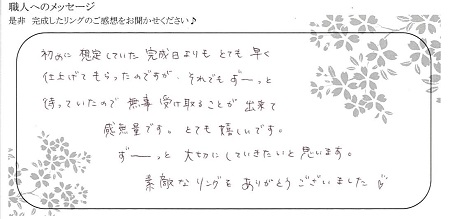 職人へのメッセージ
是非 完成したリングのご感想をお聞かせください♪
初めに 想定していた 完成日よりも とても 早く
仕上げてもらったのですが、それでも ず〜っと
待っていたので 無事 受け取ることが 出来て
感無量です。とても 嬉しいです。
ず〜っと 大切にしていきたいと 思います。
素敵なリングを ありがとうございました